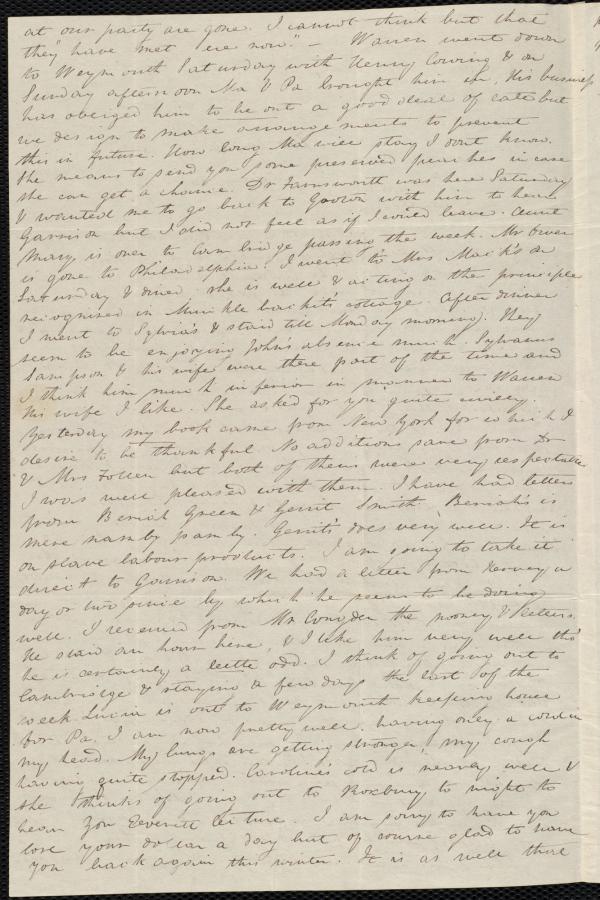 at our party are gone. I cannot think but that
they "have met ere now." – Warren went down
to Weymouth Saturday with Henry Cowing & on
Sunday afternoon Ma & Pa brought him in. His business
has obliged him to be out a good deal of late but
we design to make arrangements to prevent
this in future. How long Ma will stay I dont know.
She means to send you some preserved peaches in case
she can get a chance. Dr Farnsworth was here Saturday
& wanted me to go back to Groton with him to hear
Garrison but I did not feel as if I could leave. Aunt
Mary is over to Cambridge passing the week. Mr
is gone to Philadelphia. I went to Mrs Mack's on
Saturday & dined. She is well & acting on the principle
recognised in Muckle backit's cottage. After dinner
I went to Sylvia's & staid till Monday morning. They
seem to be enjoying John's absence much. Sylvanus
Sampson & his wife were there part of the time and
I think him much inferior in manner to Warren
His wife I like. She asked for you quite
Yesterday my book came from New York for which I
desire to be thankful No additions save from Dr
& Mrs Follen but both of them were very respectable
I was well pleased with them. I have had letters
from Beriah Green & Gerrit Smith. Beriah's is
mere namby pamby. Gerrit's does very well. It is
on slave labour products. I am going to take it
direct to Garrison. We had a letter from Hervey a
day or two since by which he seems to be doing
well. I received from Mr Congdon the money & letters.
He staid an hour here, & I like him very well tho'
he is certainly a little odd. I think of going out to
Cambridge & staying a few days the last of the
week. Lucia is out to Weymouth keeping house
for Pa. I am now pretty well, having only a cold in
my head. My lungs are getting stronger, my cough
having quite stopped. Caroline's cold is nearly well &
she thinks of going out to Roxbury to night to
hear Everett lecture. I am sorry to have you
lose your dollar a day but of course glad to have
you back again this winter. It is as well that